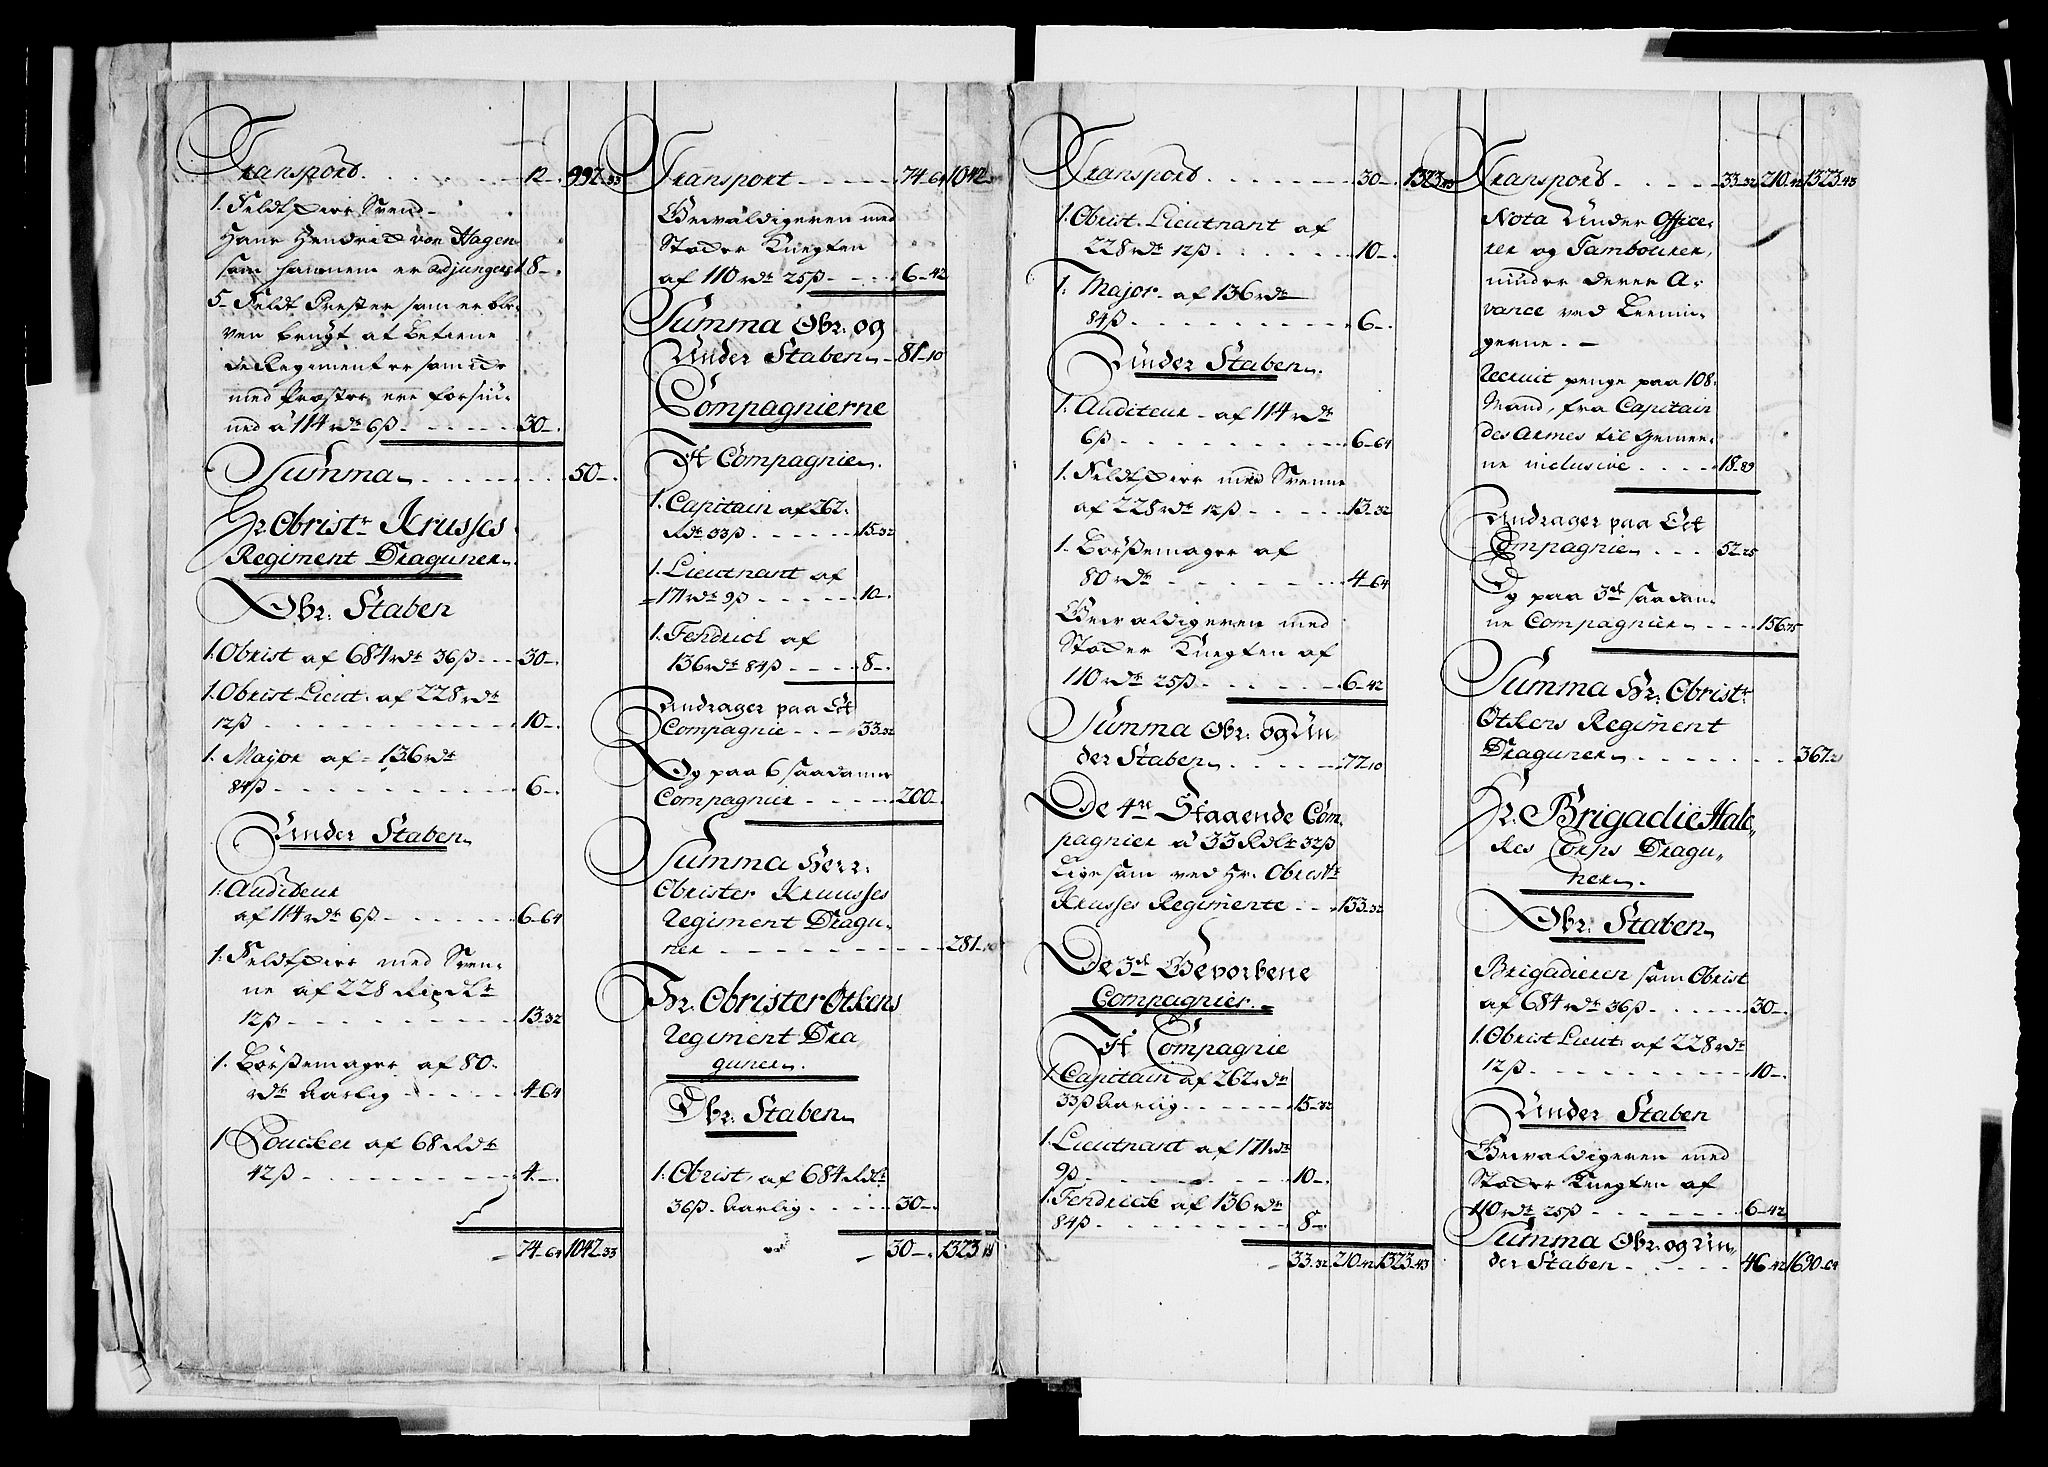 Transport. . . . . . 12 -. 992.33
1. Feldskiær Svend
Hans Hendrich von Hagen
som hannem er adjungert 8 -.
5 - Feldt Prester som er ble-
ven brugt at betiene
de Regimenter som ei
med Præster ere forsiu-
ned â 114 rdr 6ß - - - - 30 -.
Summa - - - - - 50 -.
Hr Obristr Krusses
Regiment Draguner.
Obr: Staben
1. Obrist af 684 rdr 36ß - - 30 -.
1. Obrist Lieut: af 228 rdr
12ß - - - - - - 10 -.
1. Major af - 136 rdr
84ß - - - - - - 6 -.
Under Staben.
1. Auditeur
af 114 rdr 6ß - - - - 6 - 64
1. Feldskiær med Sven-
ne af 228 Rixdlr
12ß - - - - - - 13.32
1. Børsemager af 80.
rdr Aarlig - - - - 4 - 64
1 Poucker af 68 Rdr
42ß - - - - - - 4 -.
74 - 64 1042.33
Transport - - - - - 74 - 64 1042
Gevaldigeren med
Stocker Knegten
af 110 rdr 25ß - - - 6 - 42
Summa Obr: og
Under Staben - 81 - 10
Compagnierne
It Compagnie.
1. Capitain af 262.
Rdr 33ß - - - - - 15.32
1. Lieutnant af
171 rdr 9ß - - - - 10 -.
1. Fendrich af
136 rdr 84ß - - - 8 -.
Andrager paa Eet
Compagnie - - - 33.32
Og paa 6 saadanne
Compagnier - - - - 200 -.
Summa Herr:
Obrister Kruusses
Regiment Dragu-
ner - - - - - - - 281 - 10
Hr: Obrister Otkens
Regiment Dra
guner.
Obr: Staben
1. Obrist, af 684 Rdlr
36ß - Aarlig - - - - 30 -.
30 -. 1323
Transport - - - - - 30 -. 1323.43
1. Obrist. Lieutnant af
228 rdr 12ß - - - - - 10 -.
1. Major - af 136 rdr
84ß - - - - - - - 6 -.
Under Staben.
1. Auditeur - af 114 rdr
6ß - - - - - - - 6 - 64
1. Feldskiær med Svenne
af 228 rdr 12ß - - - - 13.32
1. Børsemager af
80 rdr - - - - - - 4 - 64
Gevaldigeren med
Stocker Knegten af
110 rdr 25ß - - - - - 6 - 42
Summa Obr: og Un-
der Staben - - - - - 77.10
De 4re Staaende Com-
pagnier â 33 Rdlr 32ß
Ligesom ved Hr: Obristr
Krusses Regimente - - 133.32
De 3de Gevorbene
Compagnier. -
It Compagnie
1. Capitain af 262 rdr
33ß Aarlig - - - - - 15 - 32
1. Lieutnant af 171 rdr
9ß - - - - - - 10 -.
1. Fendrick af 136 rdr
84ß - - - - - - 8 -.
33.32 210.42 1323.43
3
Transport - - - - - 33.32 210.42 1323.43
Nota Under Office-
rer og Tambourer,
minder deres A-
vance ved Leenin-
gerne. -
Recruit penge paa 108.
Mand, fra Capitain
des Armes til Gemee-
ne inclusive - - - - 18.89
Andrager paa Eet
Compagnie - - - 52.25
Og paa 3de saadan-
ne Compagnier - - - 156.75
Summa Hr: Obristr
Otkens Regiment
Draguner - - - - - - 367.21
Hr. Brigadie Hak-
kes Corps Dragu-
ner.
Obr: Staben
Brigadieren som Obrist
af 684 rdr 36ß - - - - 30 -.
1. Obrist Lieut: af 228 rdr
12ß - - - - - - 10 -.
Under Staben
Gevaldigeren med
Stocker Knegten af
110 rdr 25ß - - - - - 6 - 42
Summa Obr: og Un-
der Staben - - - - - 46.42 1690.64